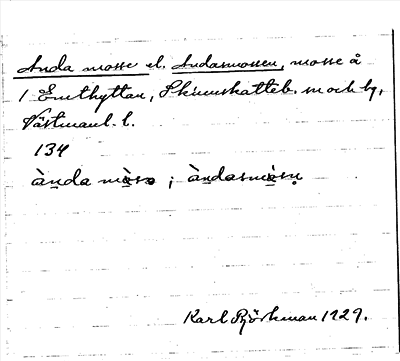 Anda mosse el. Andasmossen, mosse å
1 Emthyttan, Skinnskatteb. sn och bg,
Västmanl. l.
134
ànda mòsə ; àndasmòsn̥
Karl Björkman 1929.